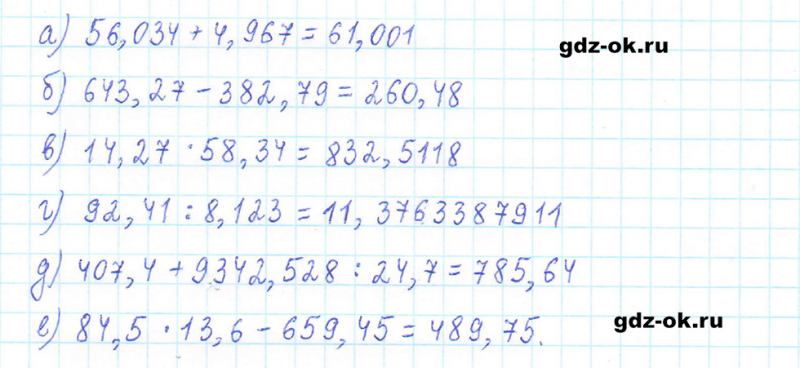 а) 56,034 + 4,967 = 61,001
gdz-ok.ru
б) 643,27 - 382,79 = 260,48
в) 14,27 · 58,34 = 832,5118
г) 92,41 : 8,123 = 11,3763387911
д) 407,4 + 9342,528 : 24,7 = 785,64
е) 84,5 · 13,6 - 659,45 = 489,75.
gdz-ok.ru